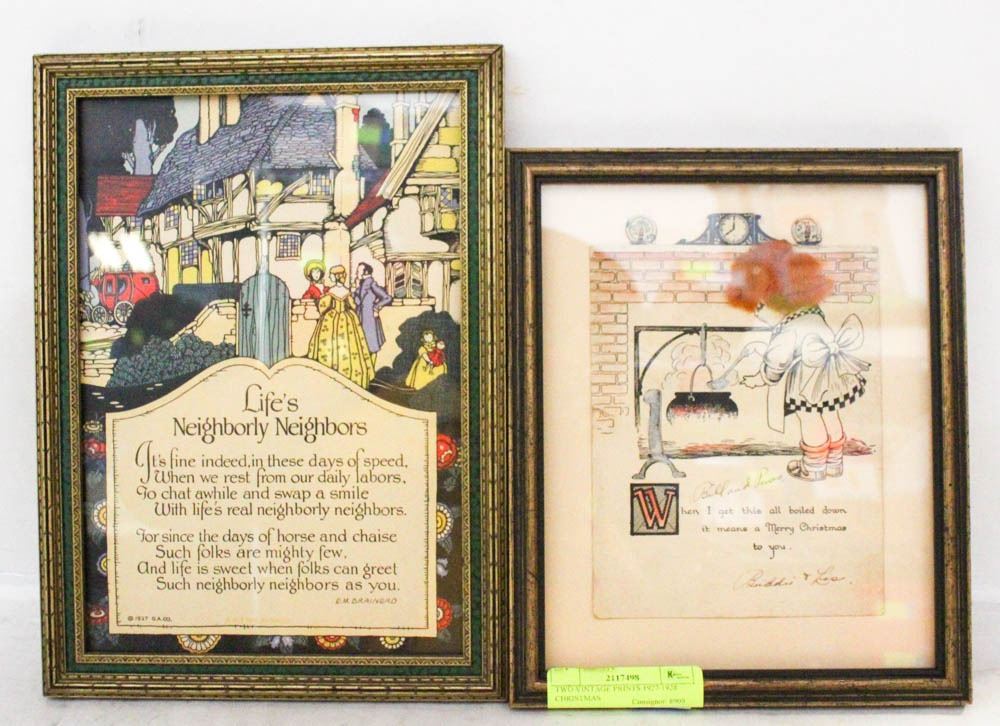 Life's
Neighborly Neighbors
It's fine indeed, in these days of speed,
When we rest from our daily labors,
To chat awhile and swap a smile
With life's real neighborly neighbors.
For since the days of horse and chaise
Such folks are mighty few,
And life is sweet when folks can greet
Such neighborly neighbors as you.
E.M. BRAINERD
© 1927 G.A. CO.
Bill and
When I get this all boiled down
it means a Merry Christmas
to you.
2117498
TWO VINTAGE PRINTS 1927-1928
CHRISTMAS
Consignor: 8905